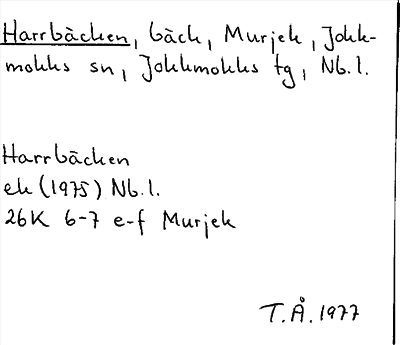 Harrbäcken, bäck, Murjek, Jokk-
mokks sn, Jokkmokks tg, Nb.l.
Harrbäcken
ek (1975) Nb.l.
26K 6-7 e-f Murjek
T.Å. 1977